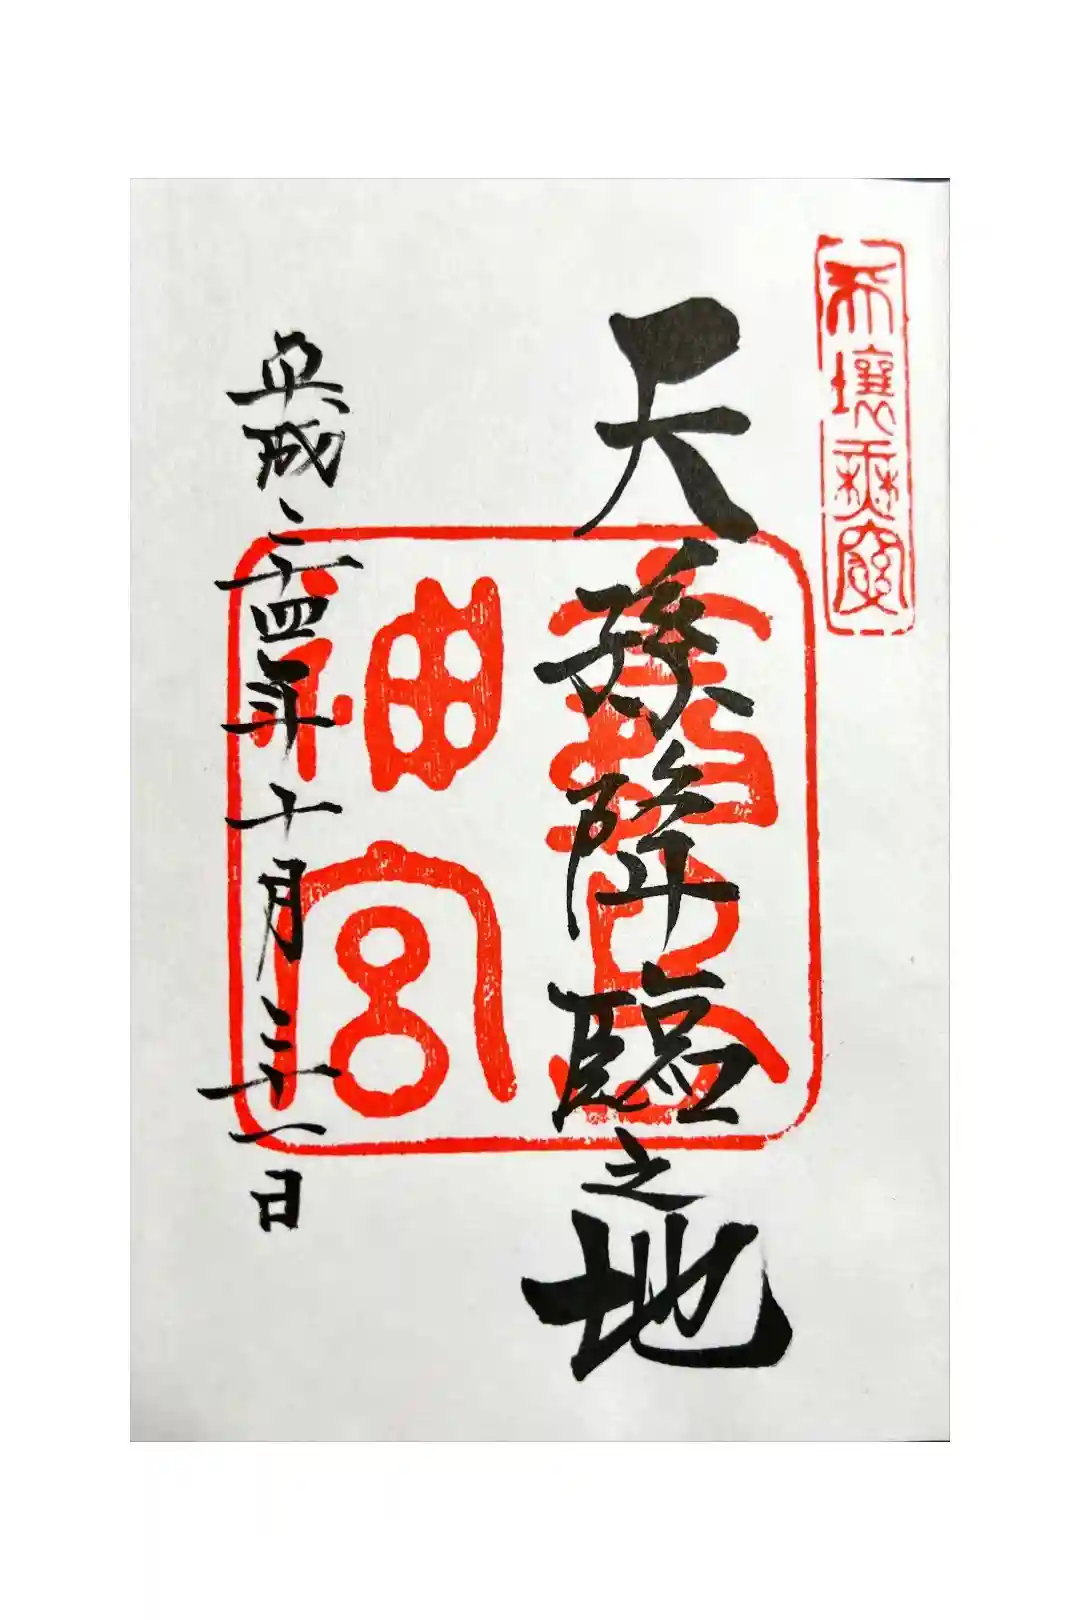 天壤無窮
天孫降臨之地
霧島
神宮
平成二十四年十月二十一日